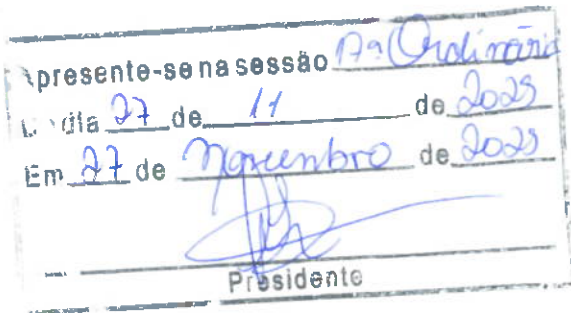 Apresente-se na sessão 17ª Ordinária
do dia 27 de 11 de 2025
Em 27 de novembro de 2025
Presidente